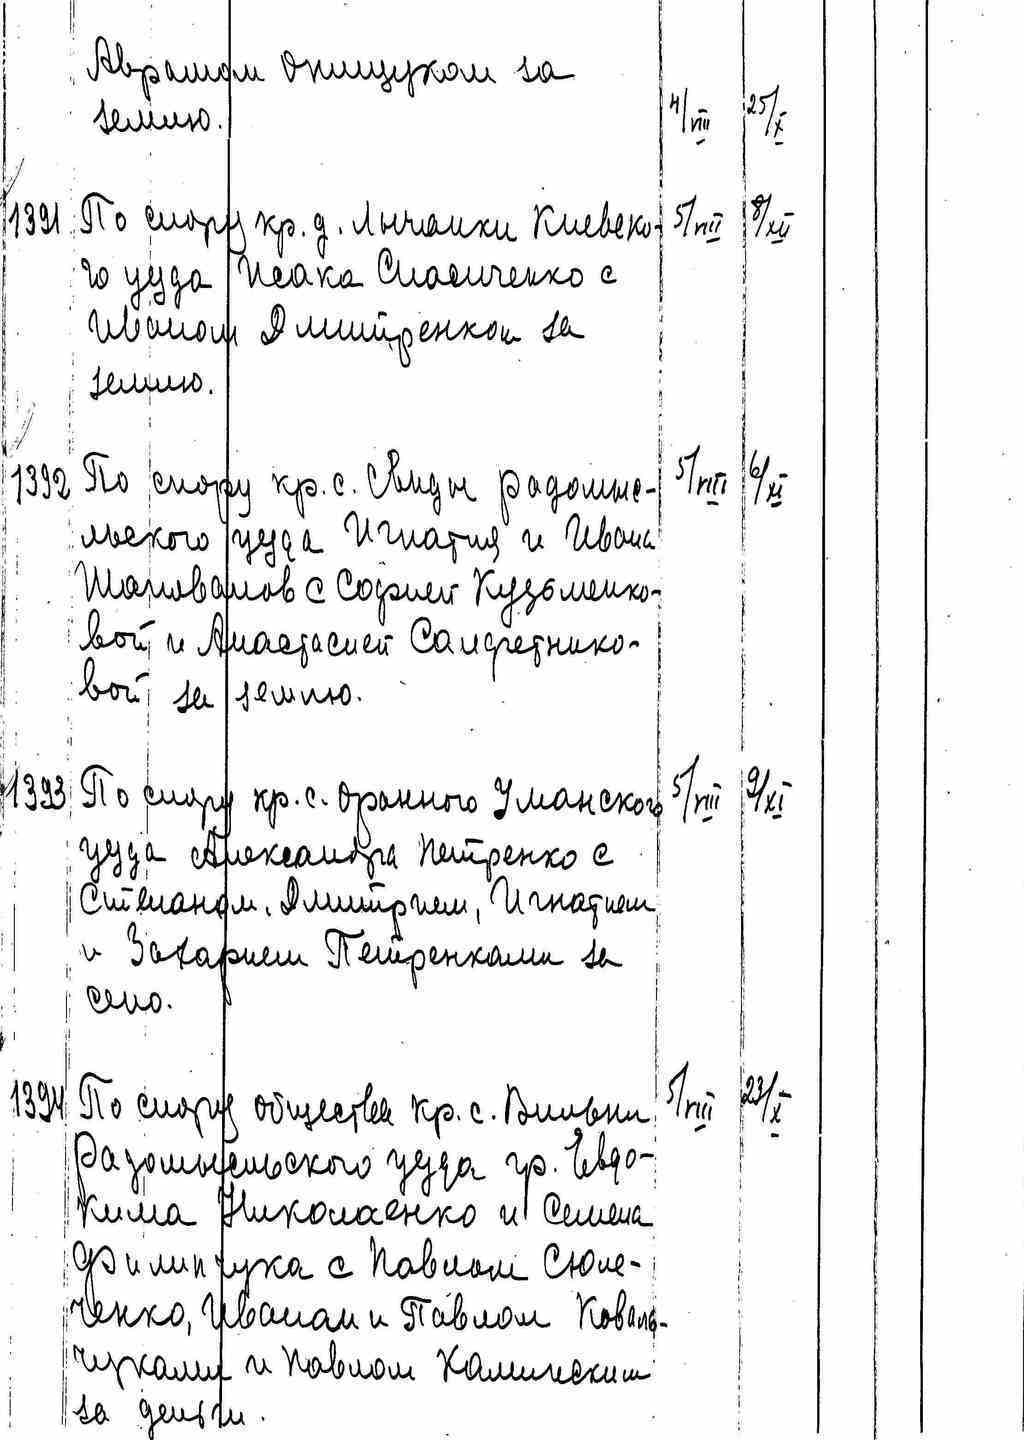 Аврамом Онищуком за
землю. 4/VIII 25/X
1391 По спору кр. д. Лычанки Киевско- 5/VIII 8/XII
го уезда Исака Спасиченко с
Иваном Дмитренком за
землю.
1392 По спору кр. с. Свиды Радомыс- 5/VIII 6/XI
льского уезда Игнатия и Ивана
Шаповалов с Софией Кузьменко-
вой и Анастасией Салфетнико-
вой за землю.
1393 По спору кр. с. Оранного Уманского 5/VIII 9/XI
уезда Александра Петренко с
Степаном, Дмитрием, Игнатием
и Захарием Петренками за
сено.
1394 По спору общества кр. с. Вильни 5/VIII 23/X
Радомысльского уезда гр. Евдо-
кима Николаенко и Семена
Филипчука с Павлом Сюле-
ченко, Иваном и Павлом Коваль-
чуками и Павлом Калинским
за деньги.